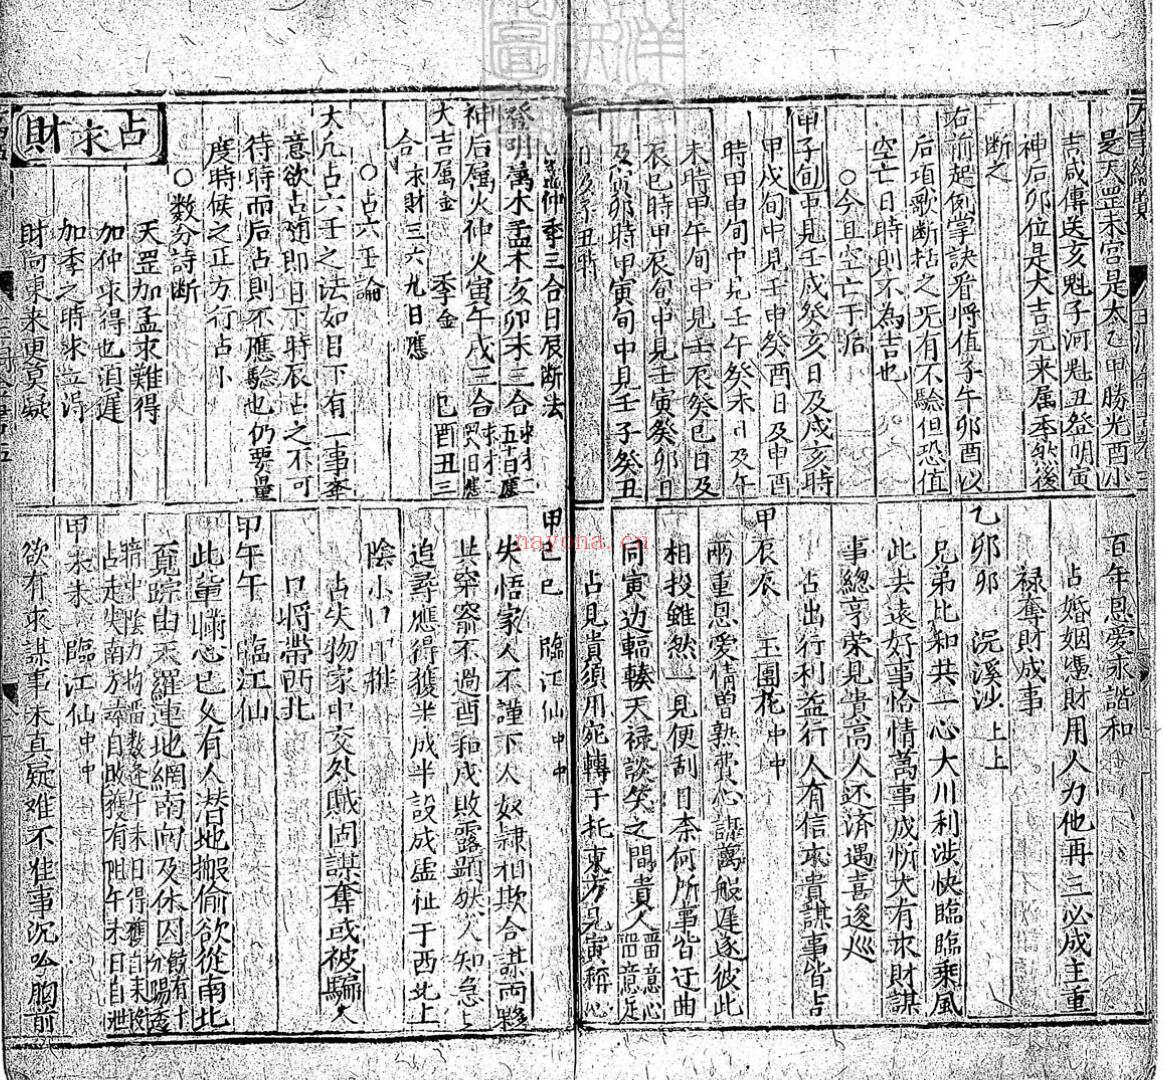 是天罡未宮是太乙甲勝光酉小
吉戌傳送亥魁子河魁丑登明寅
神后卯位是大吉元来属季秋後
断之
右前起例掌訣看將值子午卯酉以
后項歌断拈之无有不驗但恐值
空亡日時則不為吉也
○今且空亡于后
甲子旬中見壬戌癸亥日及戌亥時
甲戌旬中見壬申癸酉日及申酉
時甲申旬中見壬午癸未日及午
未時甲午旬中見壬辰癸巳日及
辰巳時甲辰旬中見壬寅癸卯日
及寅卯時甲寅旬中見壬子癸丑
仲季三合日辰断法
登明属木孟木亥卯未三合
神后属火仲火寅午戌三合
大吉属金 季金 巳酉丑三
合 求財三六九日應
○占六壬論
大凡占六壬之法如目下有一事奎
意欲占随即日下時辰占之不可
待時而后占則不應驗也仍要量
度時候之正方行占卜
○数分詩断
天罡加孟求難得
加仲求得也須遲
加季之時求立得
財向東来更莫疑
占求財
百年恩愛永諧和
占婚姻憑財用人力他再三必成主重
禄奪財成事
乙卯卯 浣溪沙 上上
兄弟比和共一心大川利涉快臨臨乘風
此去遠好事恰情萬事成忻大有求財謀
事總亨榮見貴高人还済遇喜逡巡
占出行利益行人有信求貴謀事皆吉
甲辰辰 玉團花 中中
兩重恩愛情曽熟費心謀萬般遲逐彼此
相投雖然一見便刮目奈何所事皆迂曲
同寅边輻輳天禄談笑之間貴人
占見貴須用宛轉于托東方見寅稱心
甲巳巳 臨江仙 中中
失悟家人不謹下人奴隷相欺合謀両夥
共穿窬不過酉和戌敗露顕然人知急上
追尋應得獲半成半設成虛祉于西北上
陰小口
占失物家中交外賊同謀奪或被騙人
口将帶西北
甲午午 臨江仙
此輩慚心已久有人潜地搬偷欲從南北
一覓踪由天羅連地網南向及休囚
占走失南方奔自敗獲有阻午未日自泄
甲未未 臨江仙 中中
欲有求謀事未真疑难不准事沉吟胸前